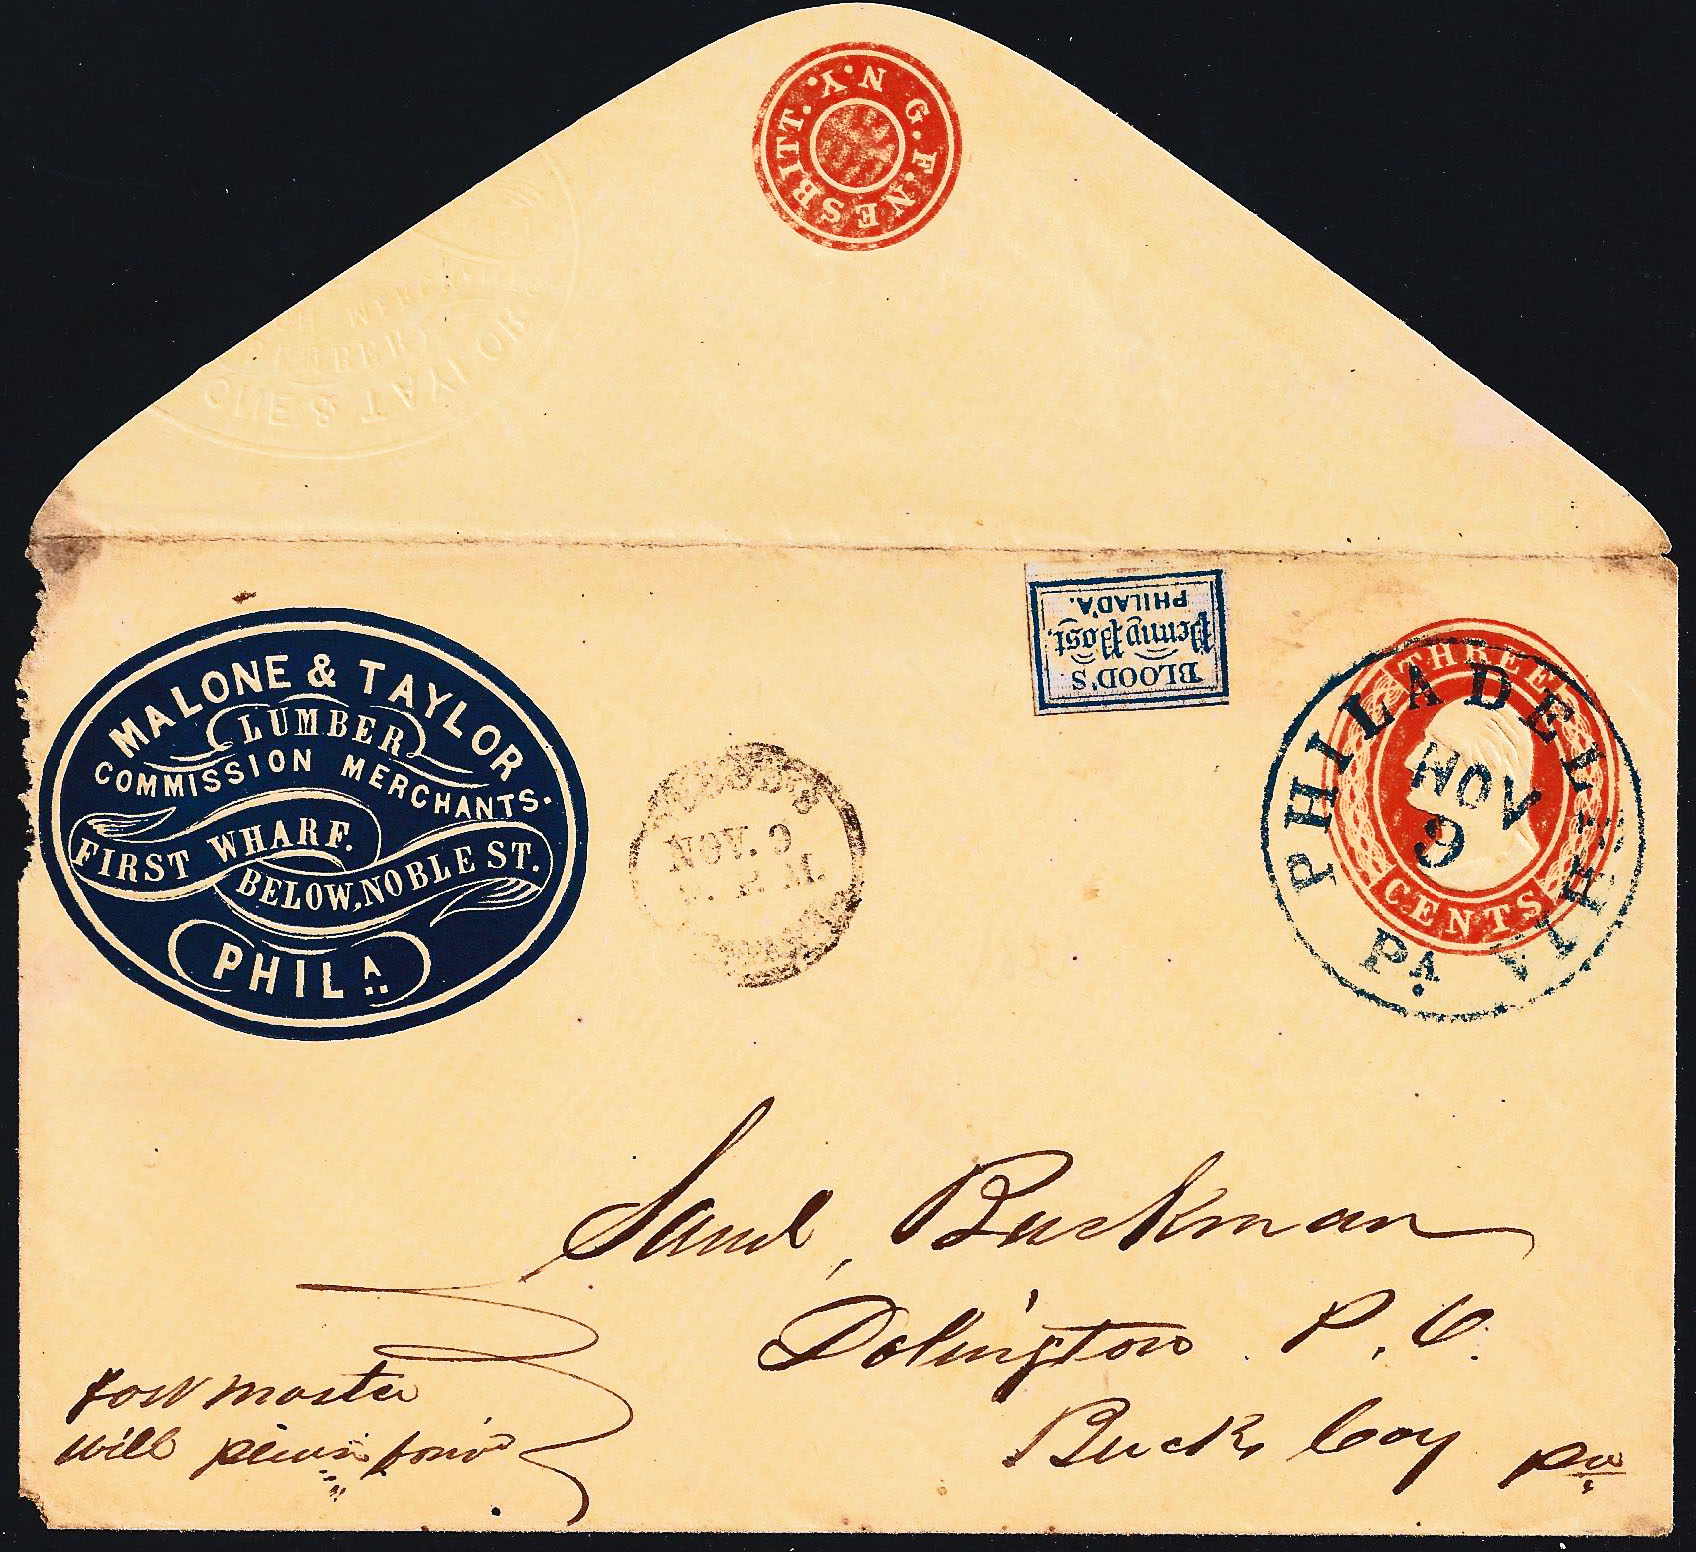 G. F. NESBITT. N.Y.
ONE & TAYLOR
LUMBER
MERC
MALONE & TAYLOR
LUMBER
COMMISSION MERCHANTS.
FIRST WHARF.
BELOW, NOBLE ST.
PHILA
NOV. 9
P. M.
BLOOD'S
Penny Post,
PHILAD'A.
THREE
CENTS
PHILADELPHIA
NOV
9
PA
Saml, Buckman
Dolington P. O.
Bucks Coy Pa
Post Master
will please forwd